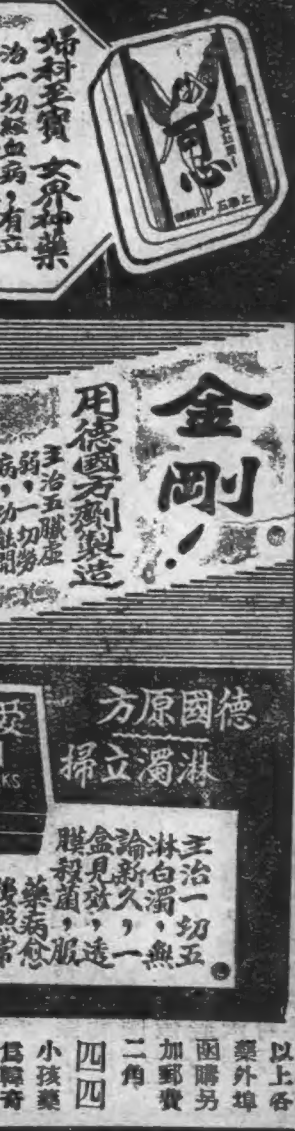 可心
婦科至寶 女界神藥
治一切經血病，有立
金剛！
用德國方劑製造
主治五臟虛
弱，一切勞
病，功能開
德國原方
淋濁立掃
主治一切五
淋白濁，無
論新久，一
盒見效，透
膜殺菌，服
藥病愈
後照常
以上各
藥外埠
函購另
加郵費
二角
四四
小孩藥